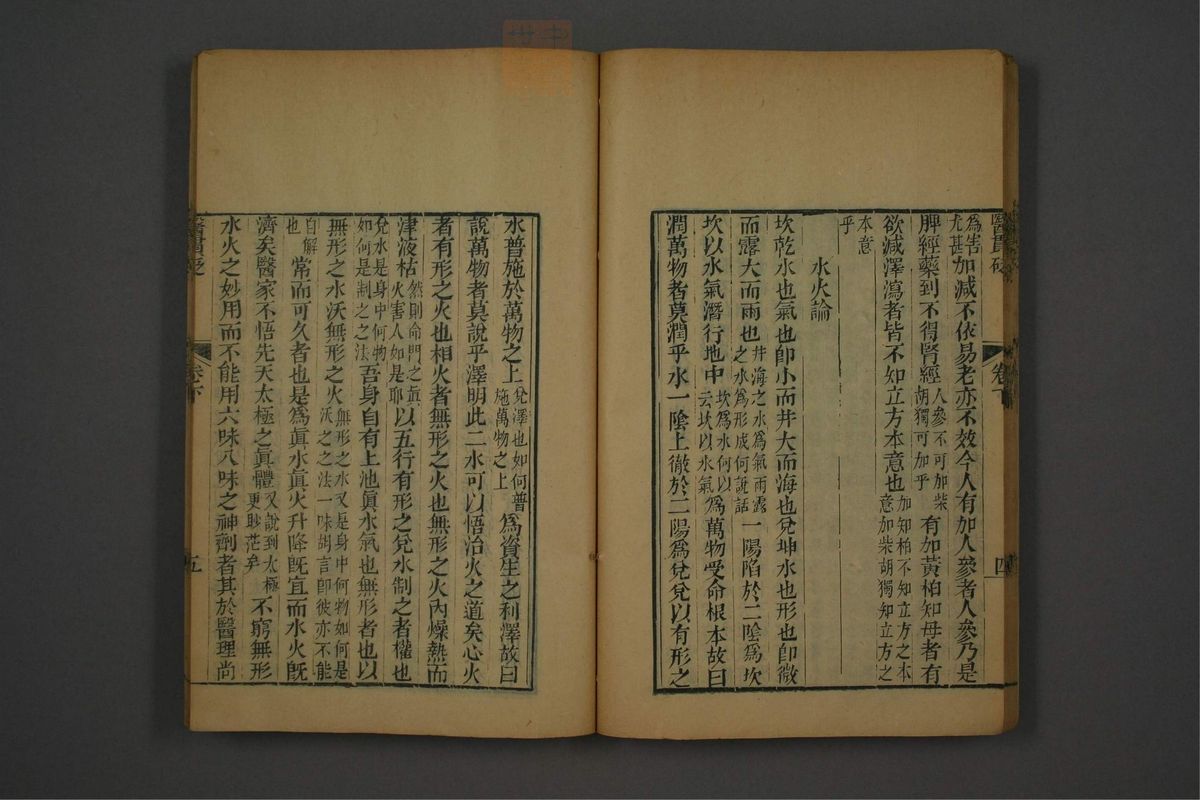 醫貫砭 卷下 四
為害尤甚加減不依易老亦不效今人有加人參者人參乃是
脾經藥到不得腎經人參不可加柴胡獨可加乎有加黃柏知母者有
欲減澤瀉者皆不知立方本意也加知柏不知立方之本意加柴胡獨知立方之
本意乎
水火論
坎乾水也氣也卽小而井大而海也兌坤水也形也卽微
而露大而雨也井海之水爲氣雨露之水爲形成何說話一陽陷於二陰爲坎
坎以水氣潛行地中坎爲水何以云坎以水氣爲萬物受命根本故曰
潤萬物者莫潤乎水一陰上徹於二陽爲兌兌以有形之
水普施於萬物之上兌澤也如何普施萬物之上爲資生之利澤故曰
說萬物者莫說乎澤明此二水可以悟治火之道矣心火
者有形之火也相火者無形之火也無形之火內燥熱而
津液枯然則命門之真火害人如是耶以五行有形之兌水制之者權也
兌水是身中何物如何是制之之法吾身自有上池眞水氣也無形者也以
無形之水沃無形之火無形之水又是身中何物如何是沃之之法一味胡言卽彼亦不能
自解也常而可久者也是爲眞水眞火升降旣宜而水火旣
濟矣醫家不悟先天太極之眞體又說到太極更眇茫矣不窮無形
水火之妙用而不能用六味八味之神劑者其於醫理尚
醫貫砭 卷下 五